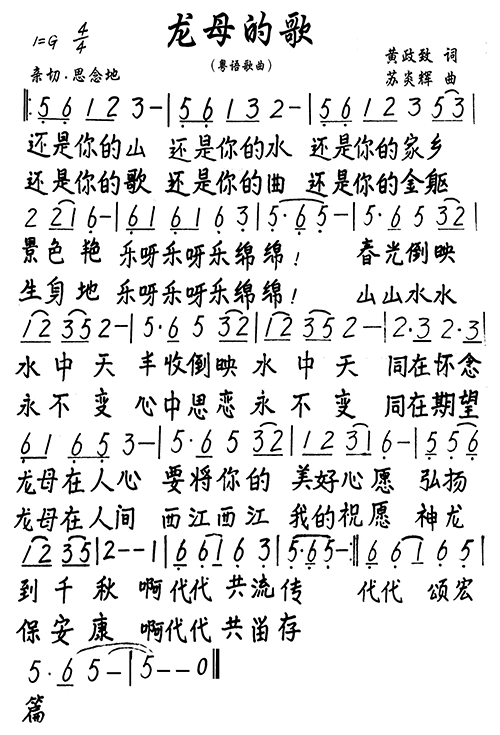 龙母的歌
1=G 4/4
（粤语歌曲）
黄政致 词
亲切·思念地
苏炎辉 曲
‖: 5 6 1 2 3 - | 5 6 1 3 2 - | 5 6 1 2 3 5 3 |
还是你的山 还是你的水 还是你的家乡
还是你的歌 还是你的曲 还是你的金躯
2 2 1 6 - | 6 1 6 1 6 3 | 5 · 6 5 - | 5 · 6 5 3 2 |
景色艳 乐呀乐呀乐绵绵！ 春光倒映
生身地 乐呀乐呀乐绵绵！ 山山水水
1 2 3 5 2 - | 5 · 6 5 3 2 | 1 2 3 5 2 - | 2 · 3 2 · 3 |
水中天 丰收倒映水中天 同在怀念
永不变 心中思恋永不变 同在期望
6 1 6 5 3 - | 5 · 6 5 3 2 | 1 2 3 1 6 - | 5 5 6 |
龙母在人心 要将你的 美好心愿 弘扬
龙母在人间 西江西江 我的祝愿 神龙
1 2 3 5 | 2 - - 1 | 6 6 1 6 3 | 5 · 6 5 - :‖ 6 6 1 6 5 |
到千秋 啊代代共流传 代代颂宏
保安康 啊代代共留存
5 · 6 5 - | 5 - - 0 ‖
篇